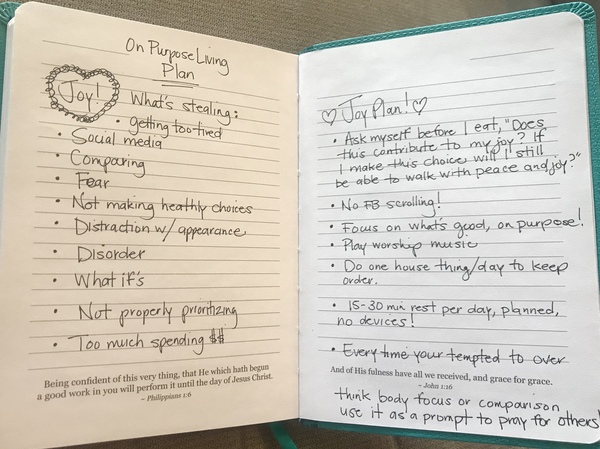 On Purpose Living
Plan
Joy!
What's stealing:
• getting too tired
• Social media
• Comparing
• Fear
• Not making heathly choices
• Distraction w/ appearance
• Disorder
• What if's
• Not properly prioritizing
• Too much spending $$
Being confident of this very thing, that He which hath begun
a good work in you will perform it until the day of Jesus Christ.
~ Philippians 1:6
♡ Joy Plan! ♡
• Ask myself before I eat, "Does
this contribute to my joy? If
I make this choice will I still
be able to walk with peace and joy?"
• No FB scrolling!
• Focus on what's good, on purpose!
• Play worship music
• Do one house thing/day to keep
order.
• 15-30 min rest per day, planned,
no devices!
• Every time your tempted to over
And of His fulness have all we received, and grace for grace.
~ John 1:16
think body focus or comparison
use it as a prompt to pray for others!